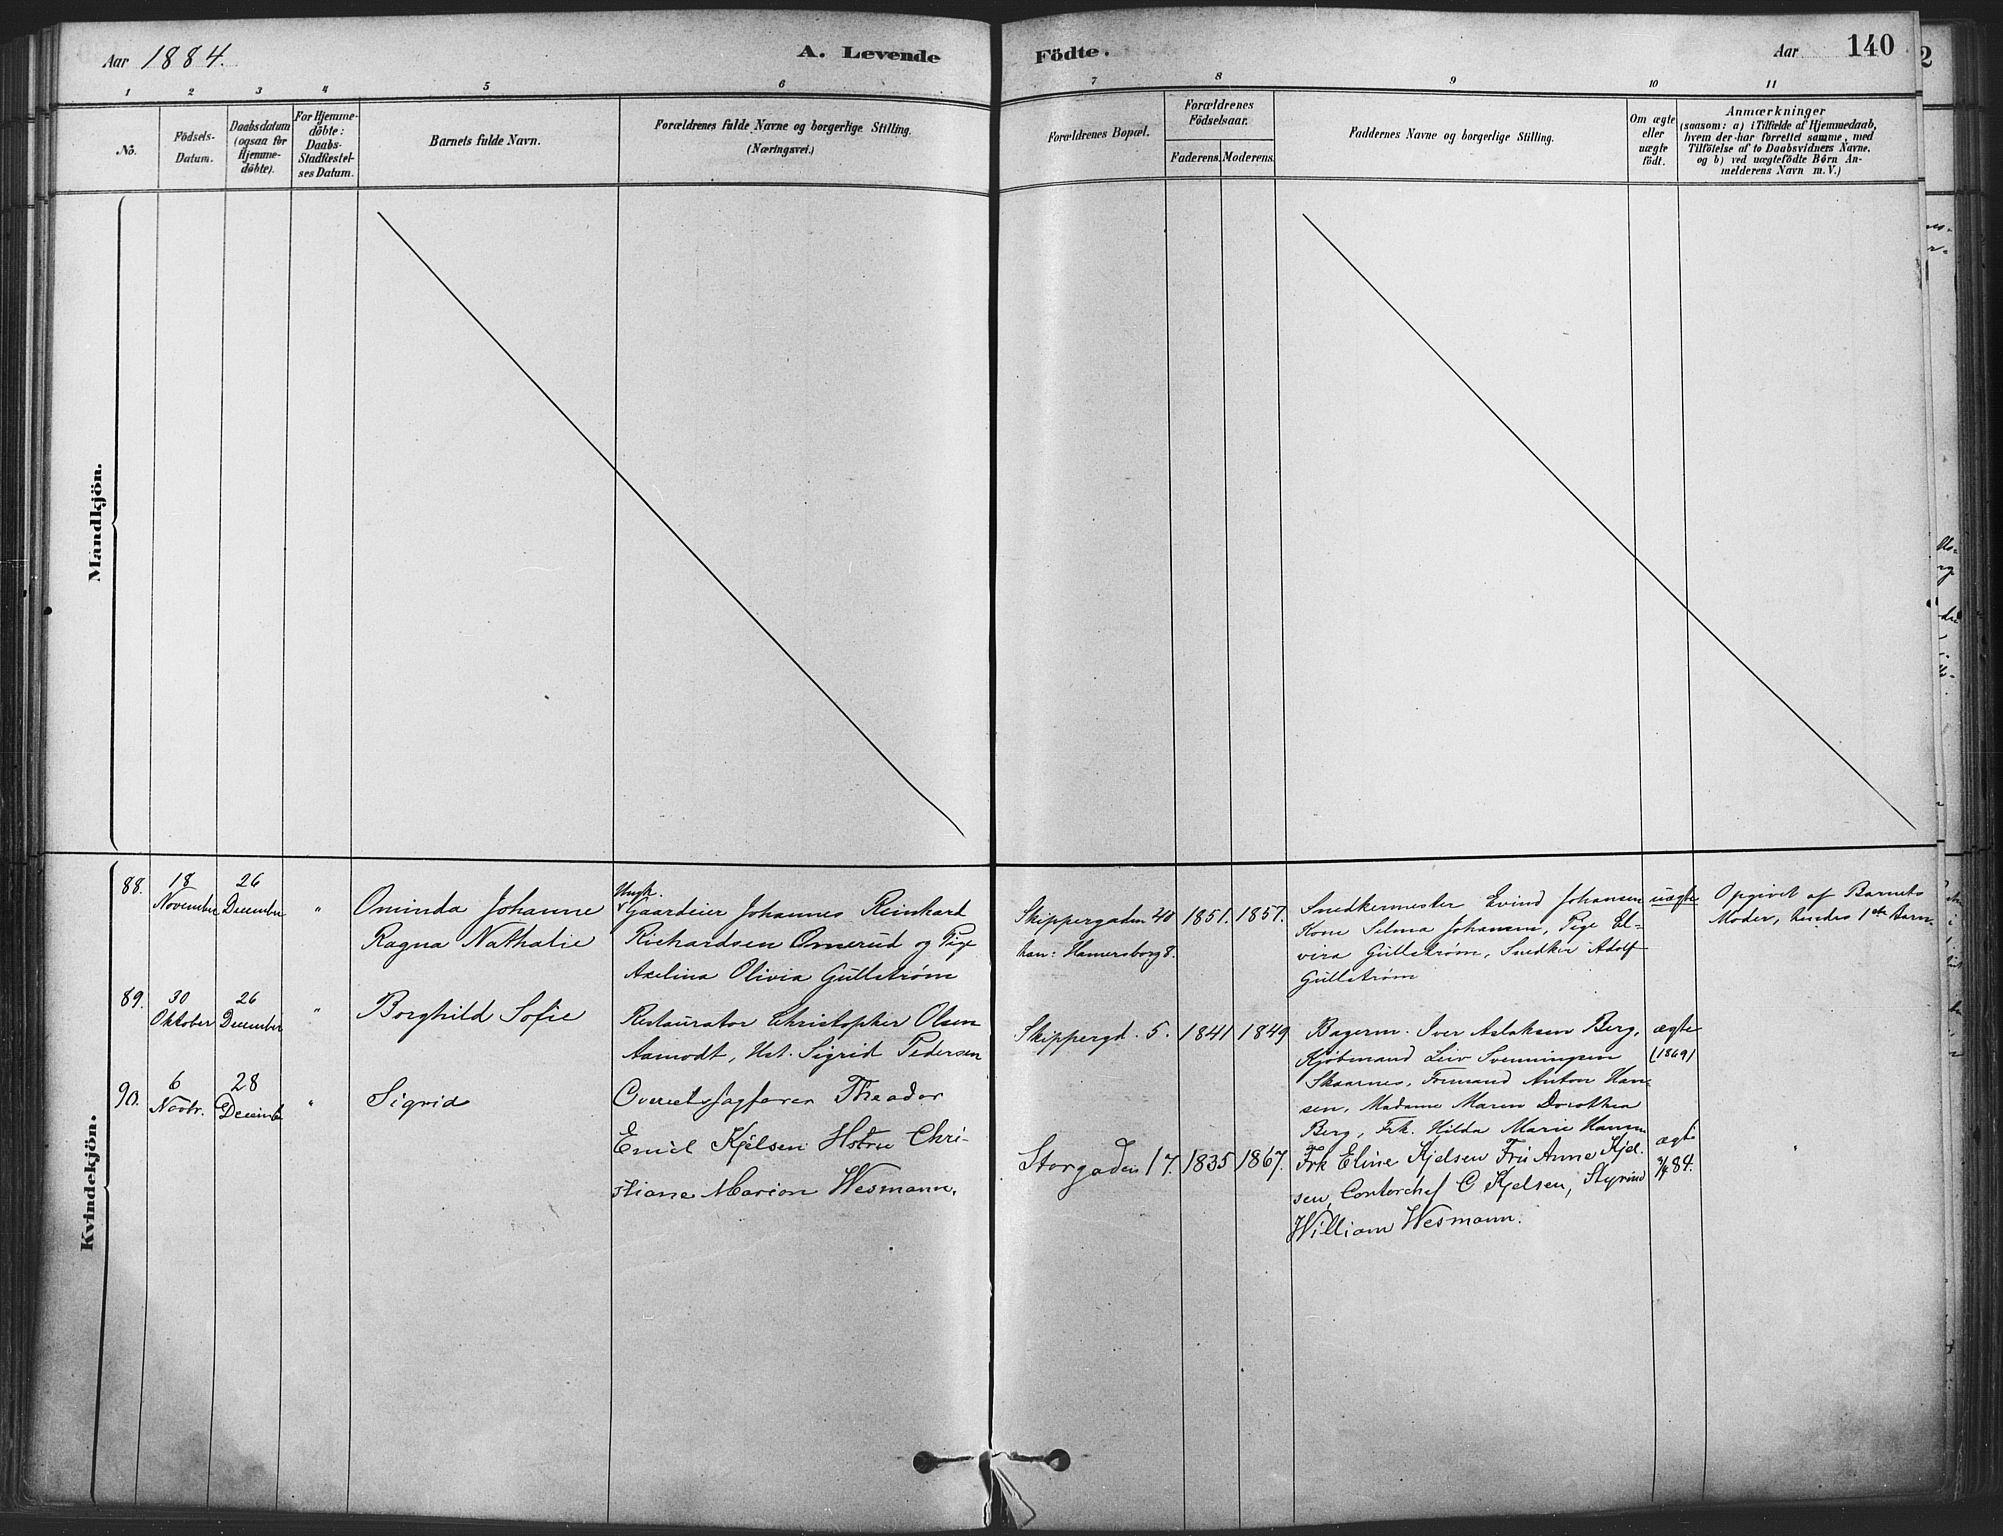 Aar 1884.
A. Levende
Födte.
Aar
140
1
2
3
4
5
6
7
8
9
10
11
No.
Födsels-
Datum.
Daabsdatum
(ogsaa for
Hjemme-
döbte).
For Hjemme-
döbte:
Daabs-
Stadfæstel-
ses Datum.
Barnets fulde Navn.
Forældrenes fulde Navne og borgerlige Stilling.
(Næringsvei.)
Forældrenes Bopæl.
Forældrenes
Födselsaar.
Faderens.
Moderens.
Faddernes Navne og borgerlige Stilling.
Om ægte
eller
uægte
födt.
Anmærkninger
(saasom: a) i Tilfælde af Hjemmedaab,
hvem der har forrettet samme, med
Tilföielse af to Daabsvidners Navne,
og b) ved uægtefödte Børn An-
melderens Navn m. V.)
Mandkjön.
Kvindekjön.
88.
18
November
26
December
"
Ominda Johanne
Ragna Nathalie
Ungk.
Gaardeier Johannes Reinhard
Richardsen Omerud og Pige
Axelina Olivia Gullstrøm
Skippergaden 40
han: Hamersborg 8.
1851.
1857.
Snedkermester Evind Johansen
Kone Selma Johansen, Pige El-
vira Gullstrøm, Snedker Adolf
Gullstrøm
uægte
Opgivet af Barnets
Moder, hendes 1ste Barn.
89.
30
Oktober
26
December
"
Borghild Sofie
Restauratør Christopher Olsen
Aamodt, Hst. Sigrid Pedersen
Skippergd. 5.
1841
1849
Bagerm. Iver Aslaksen Berg,
Kjøbmand Leiv Svenningsen
Skaarnes, Formand Anton Han-
sen, Madame Maren Dorothea
Berg, Frk. Hilda Marie Hansen
ægte
(1869)
90.
6
Novbr.
28
Decemb
"
Sigrid
Overretssagfører Theodor
Emil Kjelsen Hstru Chri-
stiane Marion Wesmann.
Storgaden 17.
1835
1867.
Frk Eline Kjelsen Fru Anne Kjel-
sen, Contorchef C Kjelsen, Styrmd
William Wesmann.
ægte
84.
"